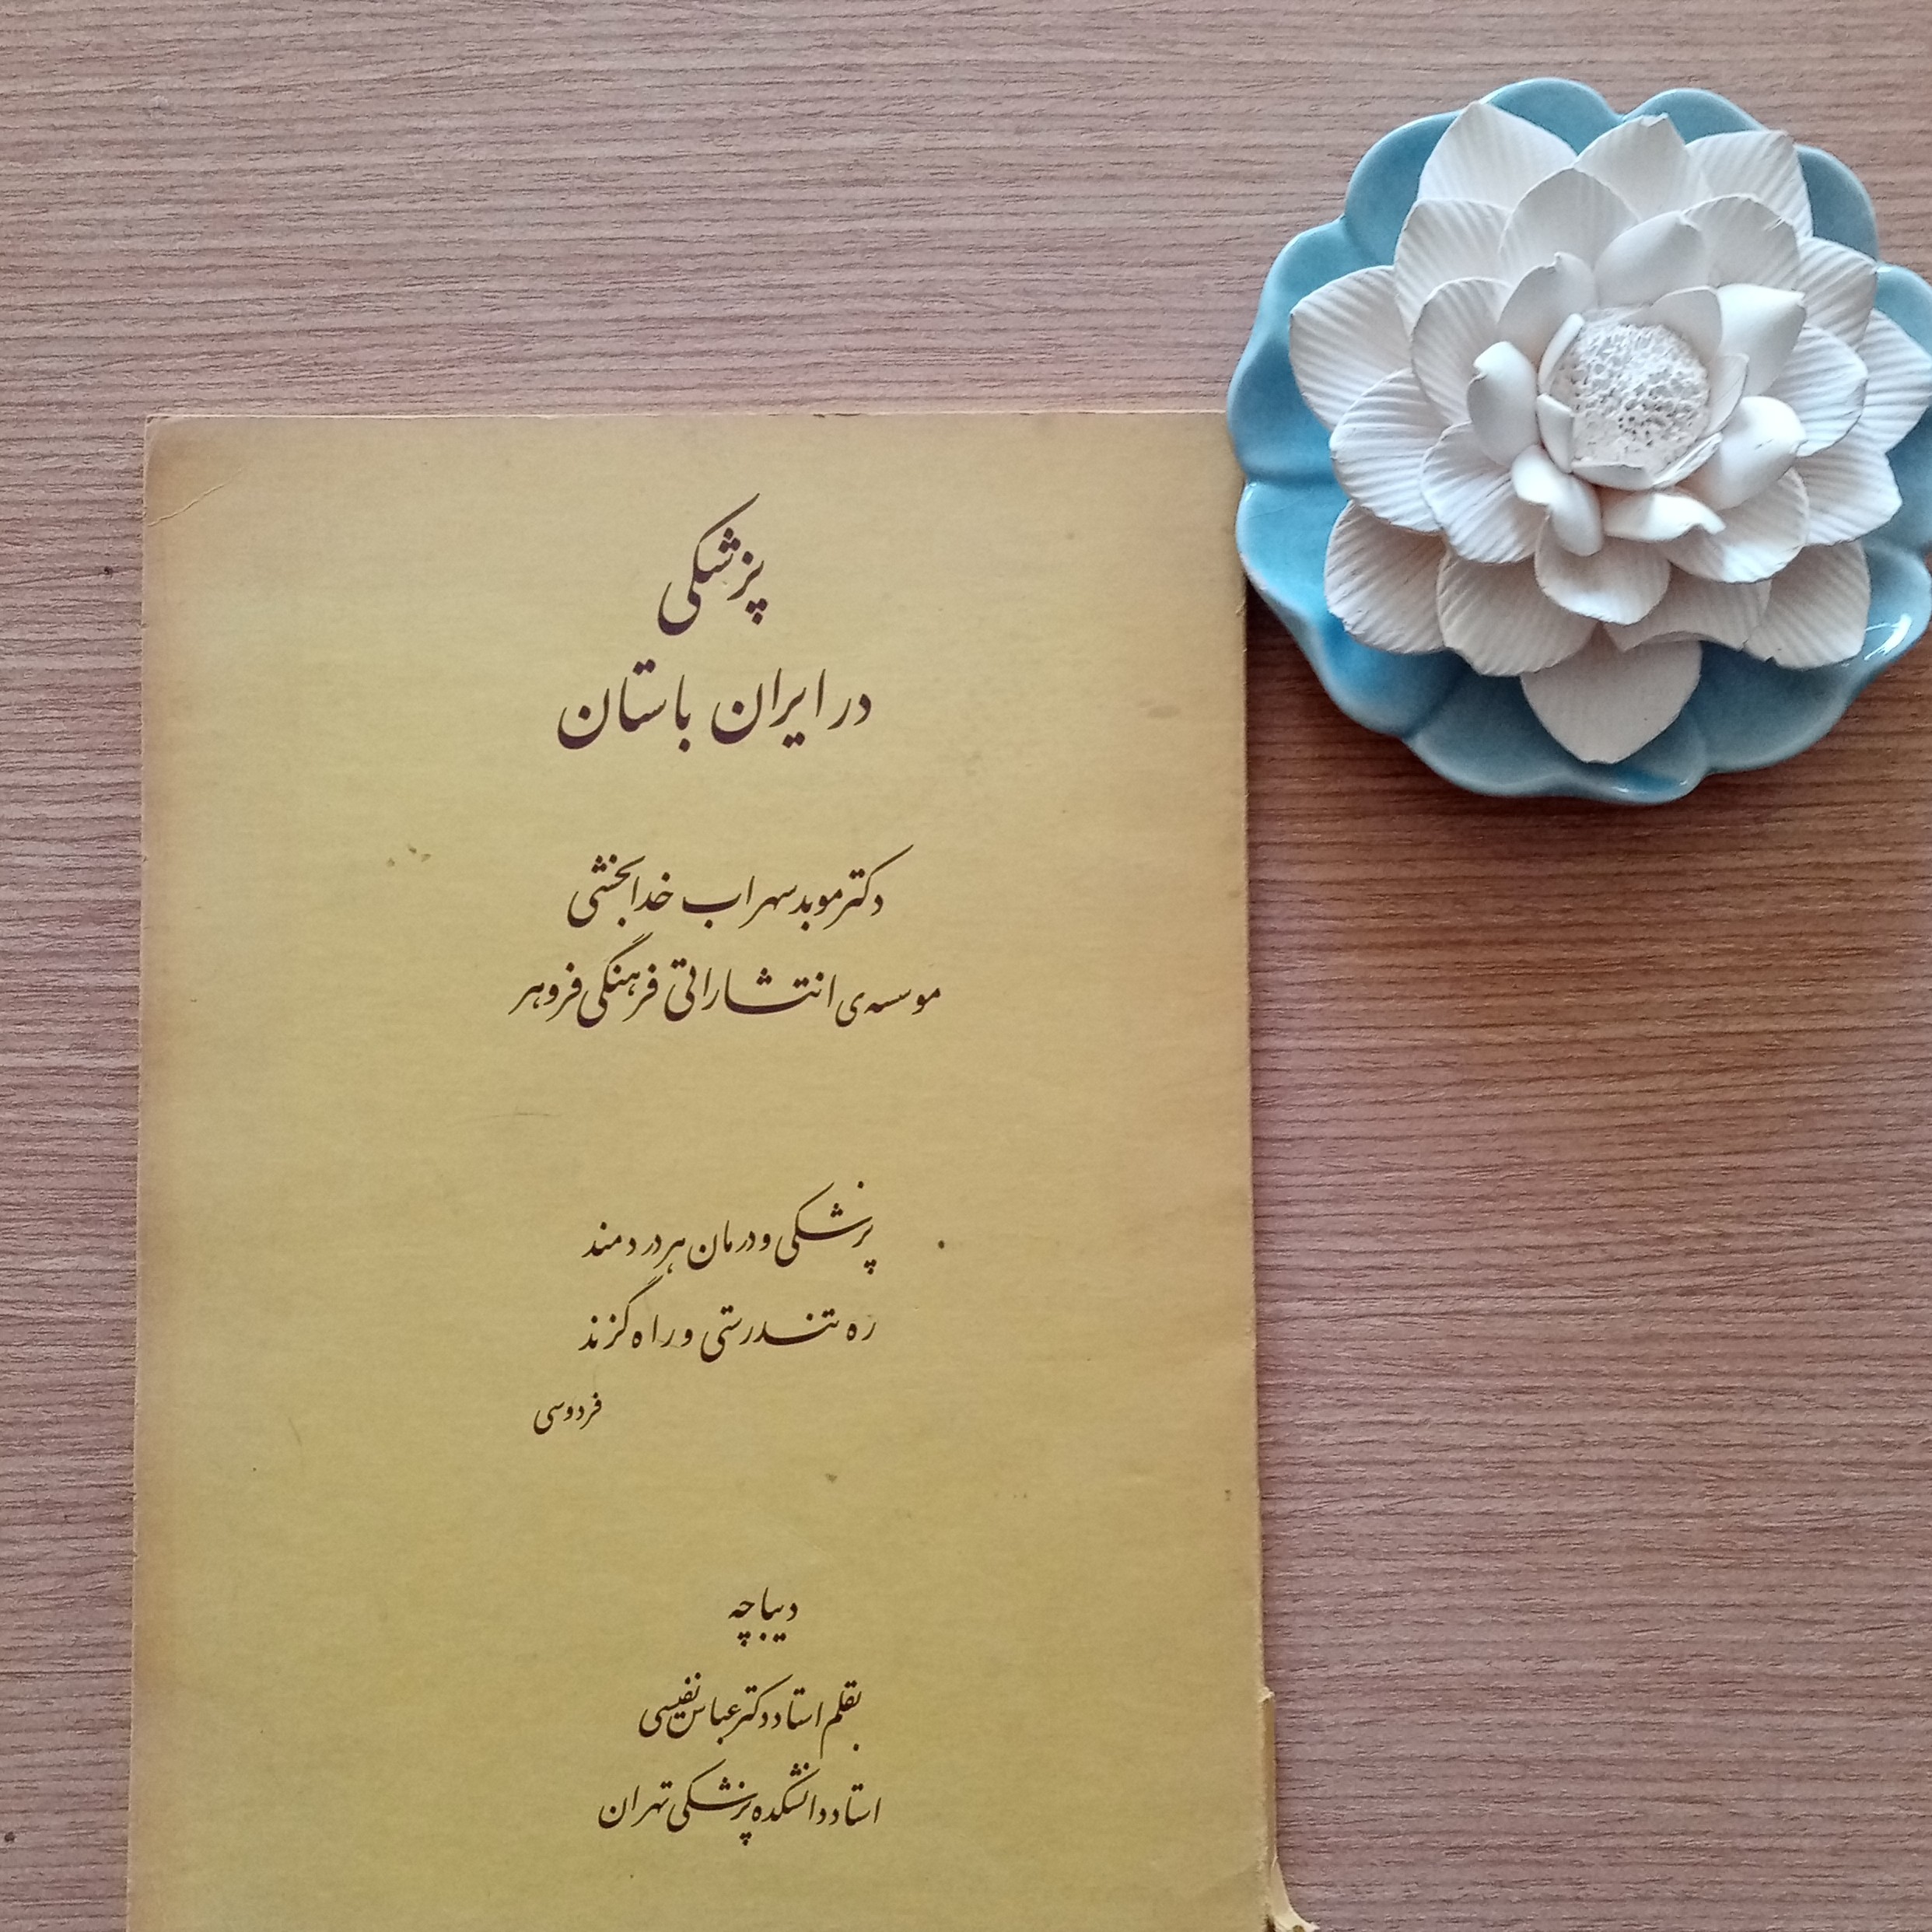 پزشکی
در ایران باستان
دکتر موبد سهراب خدابخشی
موسسه‌ی انتشاراتی فرهنگی فروهر
پزشکی و درمان هر دردمند
ره تندرستی و راه گزند
فردوسی
دیباچه
بقلم استاد دکتر عباس نفیسی
استاد دانشکده پزشکی تهران